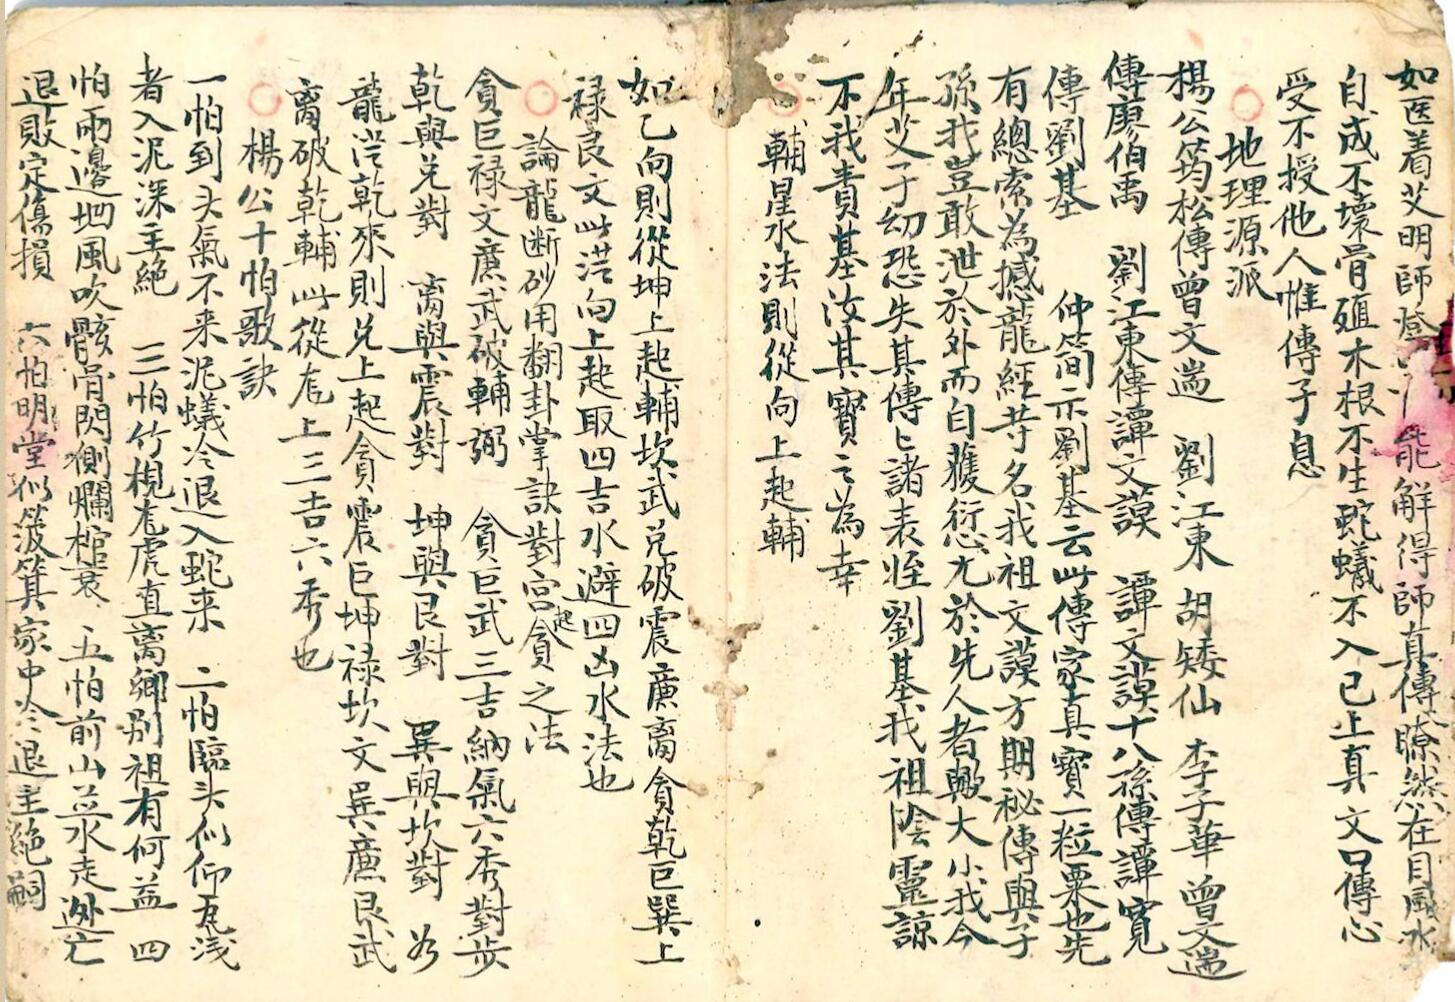 如医着艾明師 能解得師真傳瞭然在目風水
自成不壞骨殖木根不生蛇蟻不入已上真文口傳心
受不授他人惟傳子息
○地理源派
楊公筠松傳曾文遄 劉江東 胡矮仙 李子華 曾文遄
傳廖伯禹 劉江東傳譚文謨 譚文謨十八孫傳譚寬
傳劉基 仲簡示劉基云此傳家真寶一粒粟也先
有總索為撼龍經㝵名我祖文謨方期秘傳與子
孫我豈敢泄於外而自獲愆尤於先人者歟大小我今
年艾子幼恐失其傳匕諸表姪劉基我祖陰靈諒
不我責基汝其寶之為幸
○輔星水法則從向上起輔
如乙向則從坤上起輔坎武兌破震廉离貪乾巨巽上
禄艮文此从向上起取四吉水避四凶水法也
○論龍断砂用翻卦掌訣對宫起貪之法
貪巨禄文廉武破輔弼 貪巨武三吉納氣六秀對步
乾與兑對 离與震對 坤與艮對 巽與坎對 如
龍從乾來則兑上起貪震巨坤禄坎文巽廉艮武
离破乾輔此從龙上三吉六秀也
○楊公十怕歌訣
一怕到头氣不来泥蟻冷退入蛇来 二怕臨头似仰瓦浅
者入泥深主絶 三怕竹梘龙虎直离鄉别祖有何益 四
怕兩邊凹風吹骸骨閃側爛棺衰 五怕前山並水走迯亡
退敗定傷損 六怕明堂似簸箕家中冷退主絶嗣